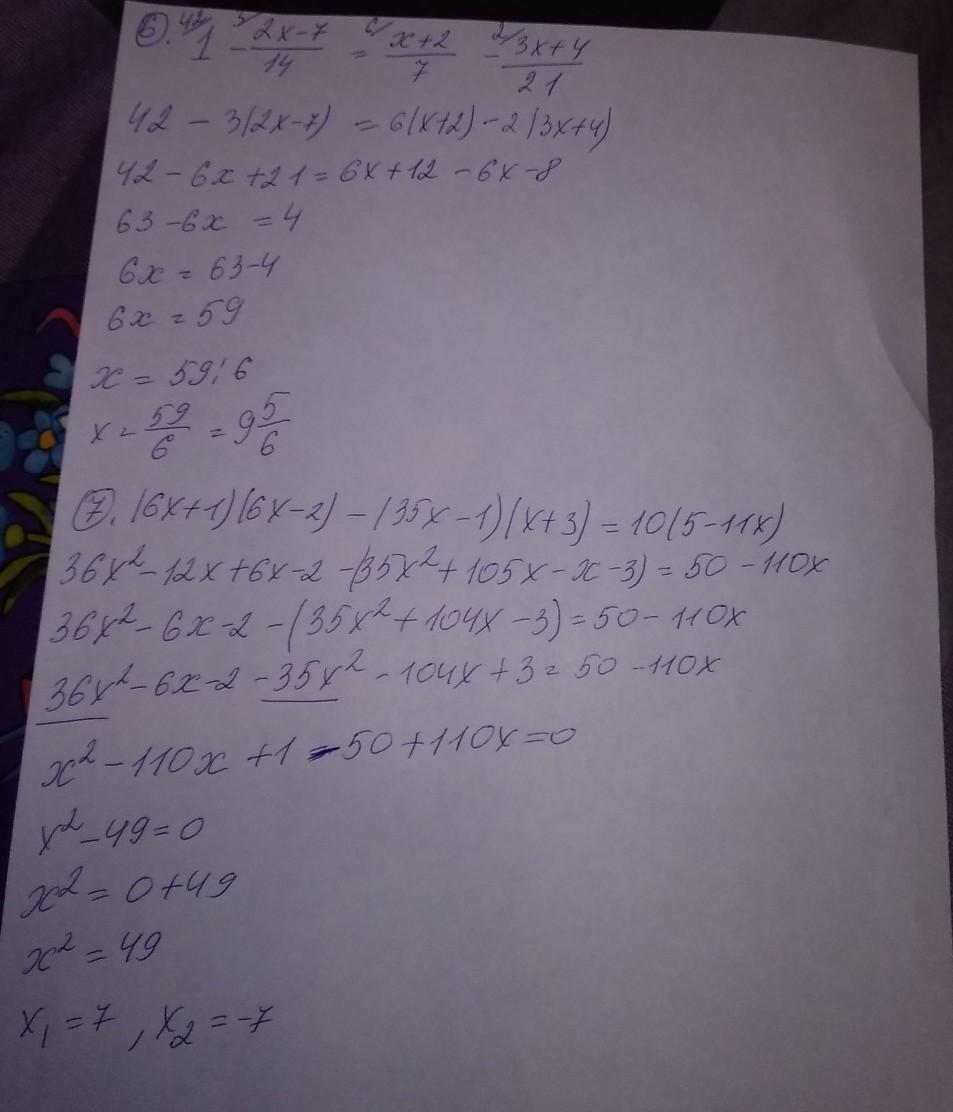 ⑥. 42/ 1 - 3/ (2x-7)/14 = 6/ (x+2)/7 - 2/ (3x+4)/21
42 - 3(2x-7) = 6(x+2) - 2(3x+4)
42 - 6x + 21 = 6x + 12 - 6x - 8
63 - 6x = 4
6x = 63 - 4
6x = 59
x = 59 : 6
x = 59/6 = 9 5/6
⑦. (6x+1)(6x-2) - (35x-1)(x+3) = 10(5-11x)
36x² - 12x + 6x - 2 - (35x² + 105x - x - 3) = 50 - 110x
36x² - 6x - 2 - (35x² + 104x - 3) = 50 - 110x
36x² - 6x - 2 - 35x² - 104x + 3 = 50 - 110x
x² - 110x + 1 - 50 + 110x = 0
x² - 49 = 0
x² = 0 + 49
x² = 49
x₁ = 7 , x₂ = -7